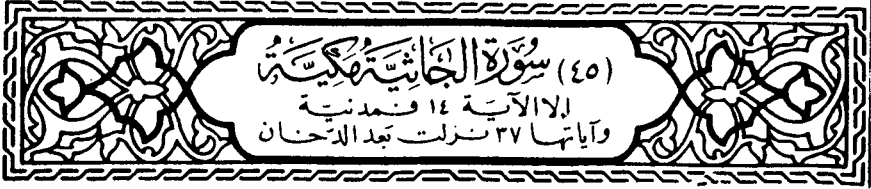 (٤٥) سُورَةُ الجَاثِيَة مَكِيَّة
إلا الآية ١٤ فمدنية
وآياتها ٣٧ نزلت بعد الدخان